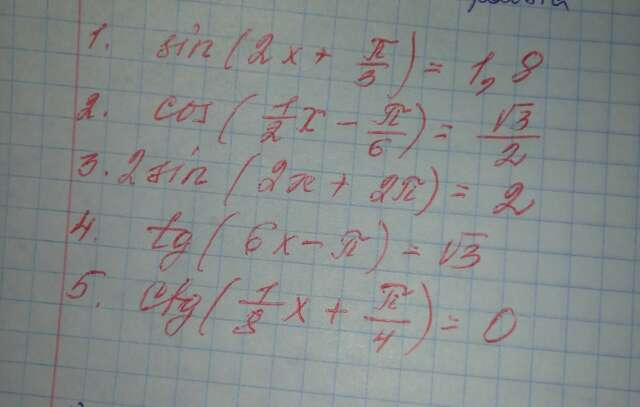 1. sin(2x + π/3) = 1,8
2. cos(1/2 x - π/6) = √3/2
3. 2sin(2x + 2π) = 2
4. tg(6x - π) = √3
5. ctg(1/3 x + π/4) = 0